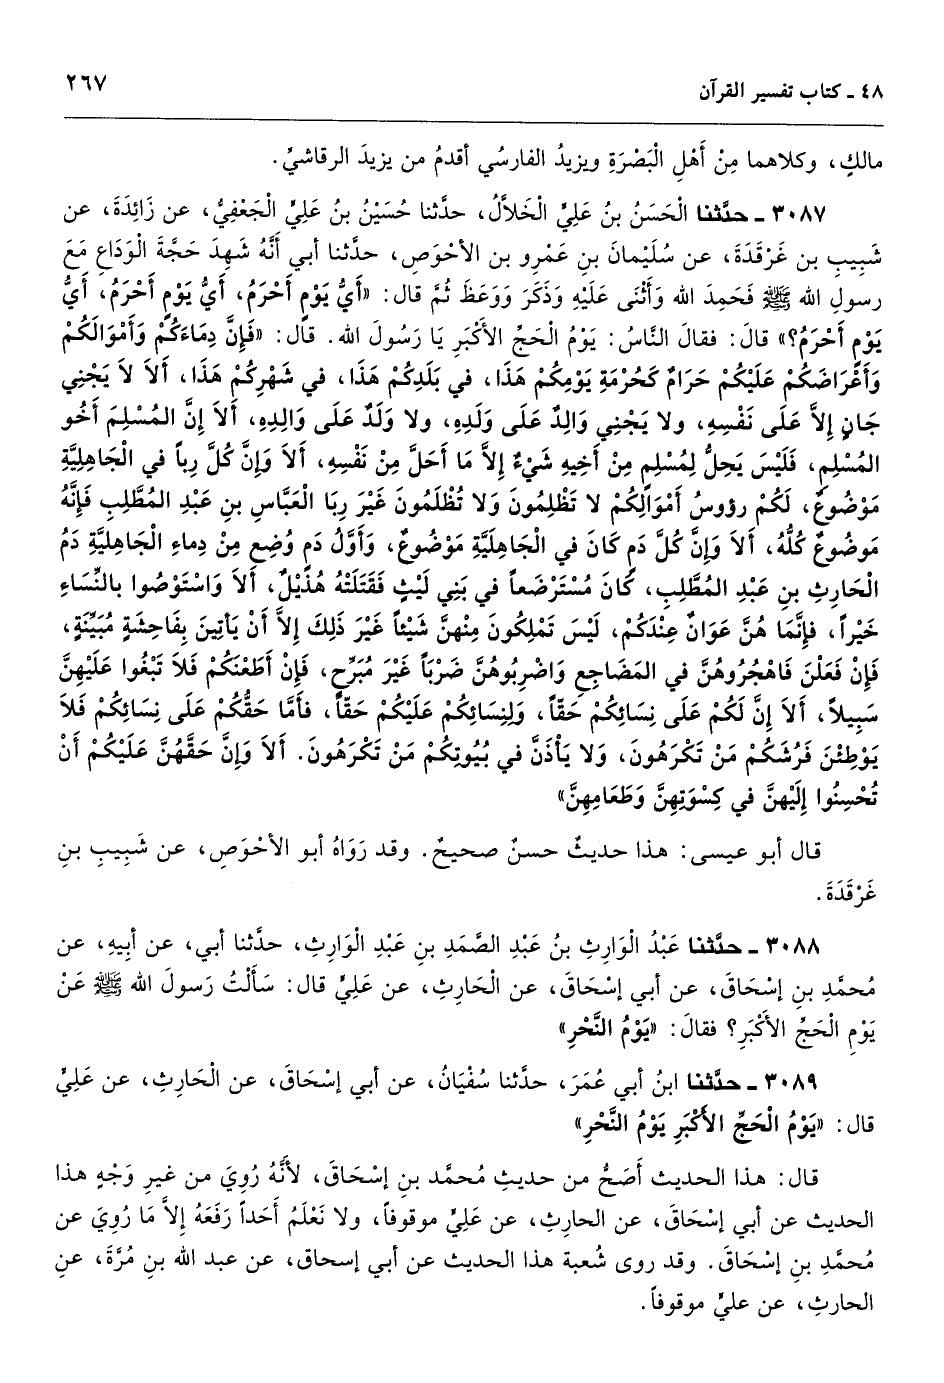 ٤٨ - كتاب تفسير القرآن
٢٦٧
مالكٍ، وكلاهما مِنْ أَهْلِ الْبَصْرَةِ ويزيدُ الفارسُي أقدمُ من يزيدَ الرقاشيِّ.
٣٠٨٧ - حدَّثنا الْحَسَنُ بنُ عَلِيٍّ الْخَلاَّلُ، حدَّثنا حُسَيْنُ بنُ عَلِيٍّ الْجَعْفِيُّ، عن زَائِدَةَ، عن
شَبِيبِ بن غَرْقَدَةَ، عن سُلَيْمانَ بنِ عَمْرِو بن الأَحْوَصِ، حدَّثنا أبي أَنَّهُ شَهِدَ حَجَّةَ الْوَدَاعِ مَعَ
رسولِ الله ﷺ فَحَمِدَ الله وَأَثْنَى عَلَيْهِ وَذَكَرَ وَوَعَظَ ثُمَّ قال: «أَيُّ يَوْمٍ أَحْرَمُ، أَيُّ يَوْمٍ أَحْرَمُ، أَيُّ
يَوْمٍ أَحْرَمُ؟» قالَ: فقالَ النَّاسُ: يَوْمُ الْحَجِّ الأَكْبَرِ يَا رَسُولَ الله. قال: «فَإِنَّ دِمَاءَكُمْ وَأَمْوَالَكُمْ
وَأَعْرَاضَكُمْ عَلَيْكُمْ حَرَامٌ كَحُرْمَةِ يَوْمِكُمْ هَذَا، في بَلَدِكُمْ هَذَا، في شَهْرِكُمْ هَذَا، أَلاَ لاَ يَجْنِي
جَانٍ إِلاَّ عَلَى نَفْسِهِ، ولا يَجْنِي وَالِدٌ عَلَى وَلَدِهِ، ولا وَلَدٌ عَلَى وَالِدِهِ، أَلاَ إِنَّ المُسْلِمَ أَخُو
المُسْلِمِ، فَلَيْسَ يَحِلُّ لِمُسْلِمٍ مِنْ أَخِيهِ شَيْءٌ إِلاَّ مَا أَحَلَّ مِنْ نَفْسِهِ، أَلاَ وَإِنَّ كُلَّ رِباً في الْجَاهِلِيَّةِ
مَوْضُوعٌ، لَكُمْ رؤوسُ أَمْوَالِكُمْ لا تَظْلِمُونَ وَلا تُظْلَمُونَ غَيْرَ رِبَا الْعَبَّاسِ بنِ عَبْدِ المُطَّلِبِ فَإِنَّهُ
مَوضُوعٌ كُلُّهُ، أَلاَ وَإِنَّ كُلَّ دَمٍ كَانَ في الْجَاهِلِيَّةِ مَوْضُوعٌ، وَأَوَّلُ دَمٍ وُضِعِ مِنْ دِماءِ الْجَاهِليَّةِ دَمُ
الْحَارِثِ بنِ عَبْدِ المُطَّلِبِ، كَانَ مُسْتَرْضَعاً في بَنِي لَيْثٍ فَقَتَلَتْهُ هُذَيْلٌ، أَلاَ وَاسْتَوْصُوا بالنِّسَاءِ
خَيْراً، فَإِنَّمَا هُنَّ عَوَانٌ عِنْدَكُمْ، لَيْسَ تَمْلِكُونَ مِنْهنَّ شَيْئاً غَيْرَ ذَلِكَ إِلاَّ أَنْ يَأتِينَ بِفَاحِشَةٍ مُبَيِّنَةٍ،
فَإِنْ فَعَلْنَ فَاهْجُرُوهُنَّ في المَضَاجِعِ وَاضْرِبُوهُنَّ ضَرْباً غَيْرَ مُبَرِّحٍ، فَإِنْ أَطَعْنَكُمْ فَلاَ تَبْغُوا عَلَيْهِنَّ
سَبِيلاً، أَلاَ إِنَّ لَكُمْ عَلَى نِسَائِكُمْ حَقّاً، وَلِنِسَائِكُمْ عَلَيْكُمْ حَقّاً، فأمَّا حَقُّكُمْ عَلَى نِسَائِكُمْ فَلاَ
يَوْطِئْنَ فَرُشَكُمْ مَنْ تَكْرَهُونَ، وَلا يَأْذَنَّ في بُيُوتِكُمْ مَنْ تَكْرَهُونَ. أَلاَ وَإِنَّ حَقَّهُنَّ عَلَيْكُمْ أَنْ
تُحْسِنُوا إِلَيْهِنَّ في كِسْوَتِهِنَّ وَطَعَامِهِنَّ»
قال أبو عيسى: هذا حديثٌ حسنٌ صحيحٌ. وقد رَوَاهُ أبو الأَحْوَصِ، عن شَبِيبِ بنِ
غَرْقَدَةَ.
٣٠٨٨ - حدَّثنا عَبْدُ الْوَارِثِ بنُ عَبْدِ الصَّمَدِ بنِ عَبْدِ الْوَارِثِ، حدَّثنا أبي، عن أَبِيهِ، عن
مُحمَّدِ بنِ إِسْحَاقَ، عن أبي إسْحَاقَ، عن الْحَارِثِ، عن عَلِيٍّ قال: سَأَلْتُ رَسولَ الله ﷺ عَنْ
يَوْمِ الْحَجِّ الأَكْبَرِ؟ فقالَ: «يَوْمُ النَّحْرِ»
٣٠٨٩ - حدَّثنا ابنُ أبي عُمَرَ، حدَّثنا سُفْيَانُ، عن أبي إسْحَاقَ، عن الْحَارِثِ، عن عَلِيٍّ
قال: «يَوْمُ الْحَجِّ الأَكْبَرِ يَوْمُ النَّحْرِ»
قال: هذا الحديث أَصَحُّ من حديثِ مُحمَّد بنِ إِسْحَاقَ، لأَنَّهُ رُوِيَ من غيرِ وَجْهٍ هذا
الحديث عن أبي إسْحَاقَ، عن الحارِثِ، عن عَلِيٍّ موقوفاً، ولا نَعْلَمُ أَحَداً رَفَعَهُ إِلاَّ مَا رُوِيَ عن
مُحمَّدِ بنِ إِسْحَاقَ. وقد روى شُعبة هذا الحديث عن أبي إسحاق، عن عبد الله بنِ مُرَّةَ، عنِ
الحارثِ، عن عليٍّ موقوفاً.